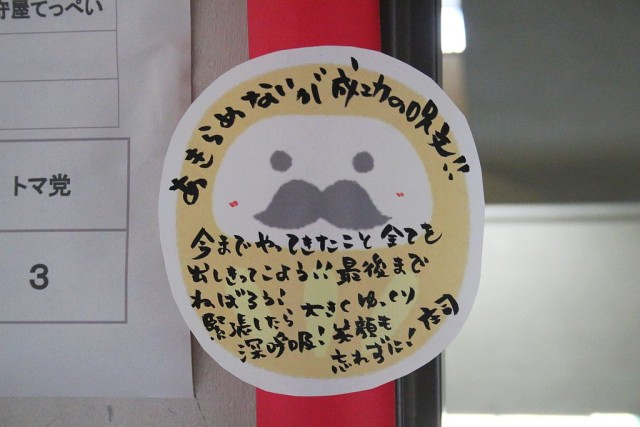 守屋てっぺい
トマ党
3
あきらめないが成功の呪文!!
今までやってきたこと全てを
出しきってこよう!! 最後まで
ねばるろ! 大きくゆっくり
緊張したら 笑顔も
深呼吸! 忘れずに!